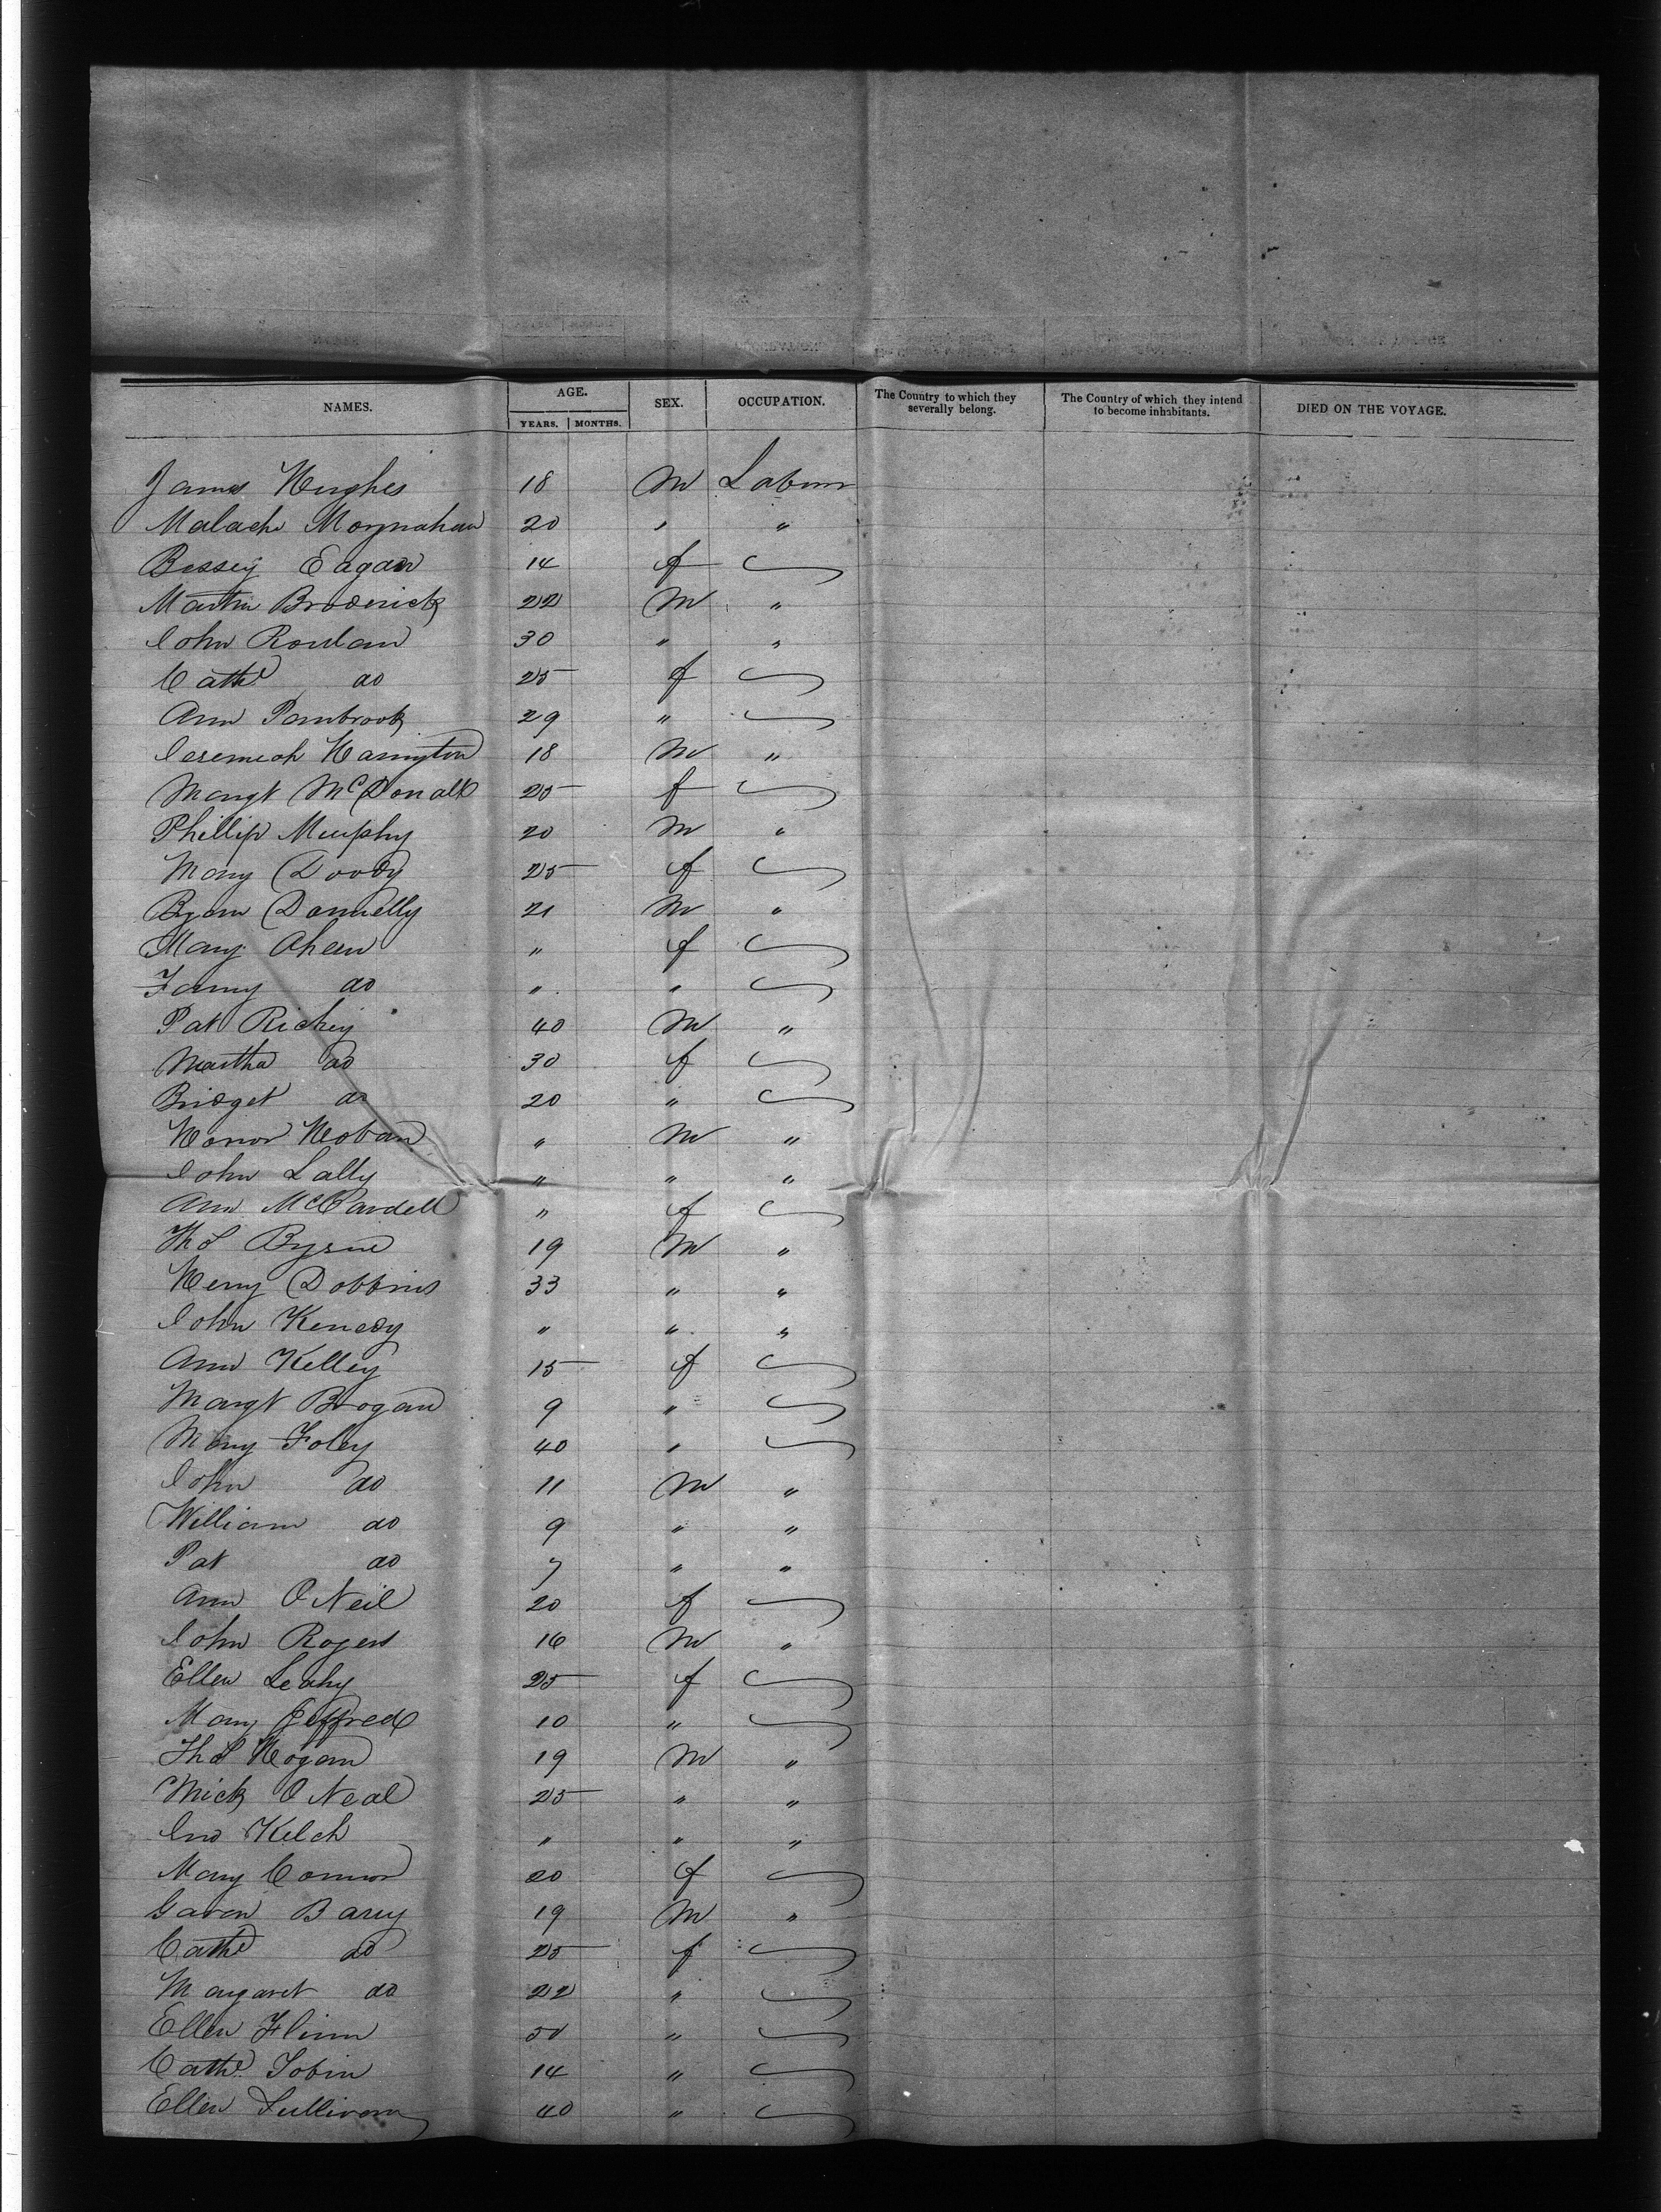 NAMES. AGE. SEX. OCCUPATION. The Country to which they severally belong. The Country of which they intend to become inhabitants. DIED ON THE VOYAGE.
YEARS. MONTHS.
James Hughes 18 M Labour
Malachi Moynahan 20 " "
Bessey Eagan 14 f
Martin Broderick 22 M "
John Roulan 30 " "
Cathe do 25 f
Ann Pambrook 29 "
Jeremeah Harrington 18 M "
Margt McDonald 25 f
Phillip Murphy 20 M "
Mary Doody 25 f
Bryan Donnelly 21 M "
Mary Ahern " f
Fanny do " "
Pat Richey 40 M "
Martha do 30 f
Bridget do 20 "
Honor Hoban " M "
John Lally " " "
Ann McCardell " f
Thos Byrne 19 M "
Henry Dobbins 33 " "
John Kenedy " " "
Ann Kelley 15 f
Margt Brogan 9 "
Mary Foley 40 "
John do 11 M "
William do 9 " "
Pat do 7 " "
Ann O Neil 20 f
John Rogers 16 M "
Ellen Leahy 25 f
Mary Jeffred 10 "
Thos Hogan 19 M "
Mick O Neal 25 " "
Jno Kelch " " "
Mary Connor 20 f
Garen Barry 19 M "
Cathe do 25 f
Margaret do 22 "
Ellen Flinn 50 "
Cathe Tobin 14 "
Ellen Sullivan 40 "